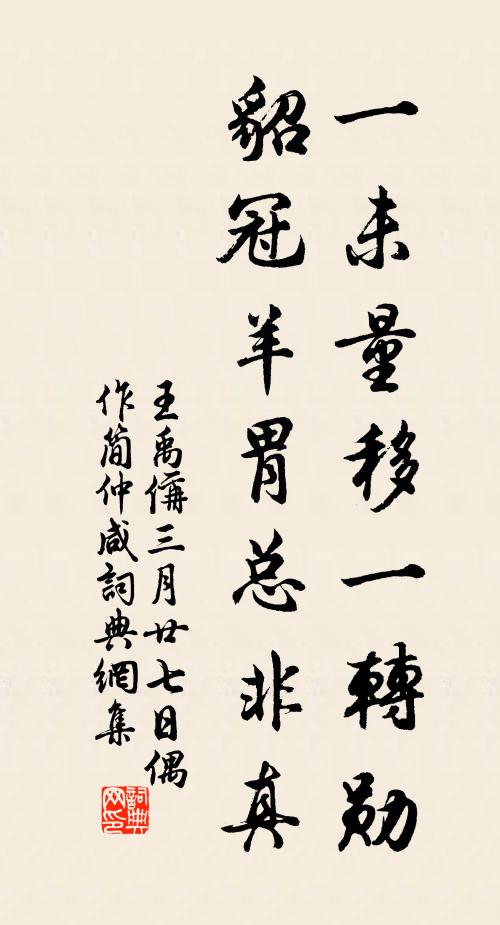 一未量移一轉勋
貂冠羊胃总非真
王禹偁三月廿七日偶
作简仲咸詞典網集
詞典
网印